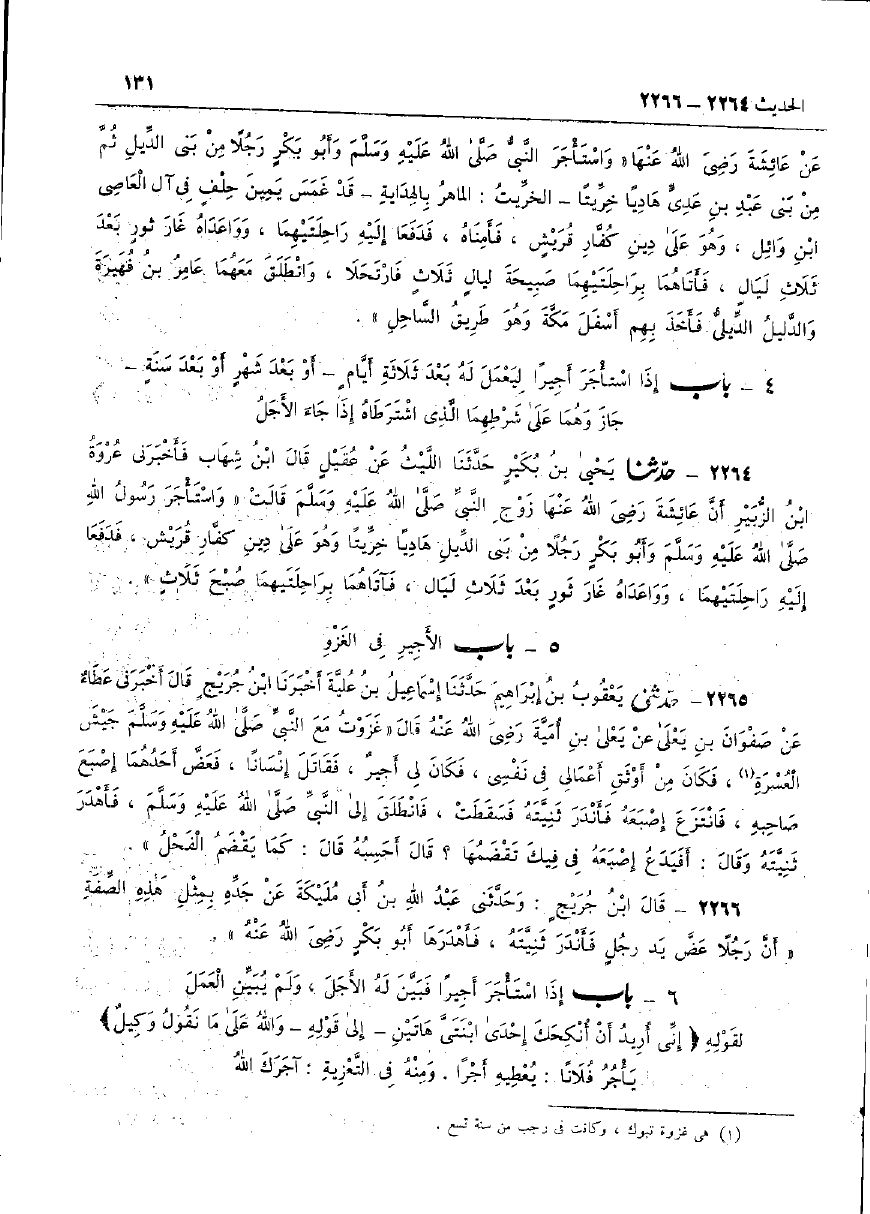 ١٣١
الحديث ٢٢٦٤ – ٢٢٦٦
عَنْ عَائِشَةَ رَضِىَ اللهُ عَنْهَا « وَاسْتَأْجَرَ النَّبِىُّ صَلَّىٰ اللهُ عَلَيْهِ وَسَلَّمَ وَأَبُو بَكْرٍ رَجُلًا مِنْ بَنِى الدِّيلِ ثُمَّ
مِنْ بَنِى عَبْدِ بنِ عَدِىٍّ هَادِيًا خِرِّيتًا – الخرِّيتُ : الماهرُ بِالهِدَايةِ – قَدْ غَمَسَ يَمِينَ حِلْفٍ فِى آلِ الْعَاصِى
ابْنِ وَائِلٍ ، وَهُوَ عَلَىٰ دِينِ كُفَّارِ قُرَيْشٍ ، فَأَمِنَاهُ ، فَدَفَعَا إِلَيْهِ رَاحِلَتَيْهِمَا ، وَوَاعَدَاهُ غَارَ ثورٍ بَعْدَ
ثَلَاثِ لَيَالٍ ، فَأَتَاهُمَا بِرَاحِلَتَيْهِمَا صَبِيحَةَ لَيالٍ ثَلَاثٍ فَارْتَحَلَا ، وَانْطَلَقَ مَعَهُمَا عَامِرُ بنُ فُهَيْرَةَ
وَالدَّلِيلُ الدِّيلِىُّ فَأَخَذَ بِهِم أَسْفَلَ مَكَّةَ وَهُوَ طَرِيقُ السَّاحِلِ » .
٤ – باب إِذَا اسْتَأْجَرَ أَجِيرًا لِيَعْمَلَ لَهُ بَعْدَ ثَلَاثَةِ أَيَّامٍ – أَوْ بَعْدَ شَهْرٍ أَوْ بَعْدَ سَنَةٍ –
جَازَ وَهُمَا عَلَىٰ شَرْطِهِمَا الَّذِى اشْتَرَطَاهُ إِذَا جَاءَ الأَجَلُ
٢٢٦٤ – حدّثنا يَحْيىٰ بنُ بُكَيْرٍ حَدَّثَنَا اللَّيْثُ عَنْ عُقَيْلٍ قَالَ ابْنُ شِهَابٍ فَأَخْبَرَنِى عُرْوَةُ
ابْنُ الزُّبَيْرِ أَنَّ عَائِشَةَ رَضِىَ اللهُ عَنْهَا زَوْجِ النَّبِىِّ صَلَّىٰ اللهُ عَلَيْهِ وَسَلَّمَ قَالَتْ « وَاسْتَأْجَرَ رَسُولُ اللهِ
صَلَّىٰ اللهُ عَلَيْهِ وَسَلَّمَ وَأَبُو بَكْرٍ رَجُلًا مِنْ بَنِى الدِّيلِ هَادِيًا خِرِّيتًا وَهُوَ عَلَىٰ دِينِ كفَّارِ قُرَيْشٍ ، فَدَفَعَا
إِلَيْهِ رَاحِلَتَيْهِمَا ، وَوَاعَدَاهُ غَارَ ثَورٍ بَعْدَ ثَلَاثِ لَيَالٍ ، فَأَتَاهُمَا بِرَاحِلَتَيهِمَا صُبْحَ ثَلَاثٍ » .
٥ – باب الأَجِيرِ فِى الغَزْوِ
٢٢٦٥ – حدّثنى يَعْقُوبُ بنُ إِبْرَاهِيمَ حَدَّثَنَا إِسْمَاعِيلُ بنُ عُلَيَّةَ أَخْبَرَنَا ابْنُ جُرَيْجٍ قَالَ أَخْبَرَنِى عَطَاءٌ
عَنْ صَفْوَانَ بنِ يَعْلَىٰ عَنْ يَعْلَىٰ بنِ أُمَيَّةَ رَضِىَ اللهُ عَنْهُ قَالَ « غَزَوْتُ مَعَ النَّبِىِّ صَلَّىٰ اللهُ عَلَيْهِ وَسَلَّمَ جَيْشَ
الْعُسْرَةِ(١) ، فَكَانَ مِنْ أَوْثَقِ أَعْمَالِى فِى نَفْسِى ، فَكَانَ لِى أَجِيرٌ ، فَقَاتَلَ إِنْسَانًا ، فَعَضَّ أَحَدُهُمَا إِصْبَعَ
صَاحِبِهِ ، فَانْتَزَعَ إِصْبَعَهُ فَأَنْدَرَ ثَنِيَّتَهُ فَسَقَطَتْ ، فَانْطَلَقَ إِلىٰ النَّبِىِّ صَلَّىٰ اللهُ عَلَيْهِ وَسَلَّمَ ، فَأَهْدَرَ
ثَنِيَّتَهُ وَقَالَ : أَفَيَدَعُ إِصْبَعَهُ فِى فِيكَ تَقْضَمُهَا ؟ قَالَ أَحْسِبُهُ قَالَ : كَمَا يَقْضَمُ الْفَحْلُ » .
٢٢٦٦ – قَالَ ابْنُ جُرَيْجٍ : وَحَدَّثَنِى عَبْدُ اللهِ بنُ أَبِى مُلَيْكَةَ عَنْ جَدِّهِ بِمِثْلِ هَٰذِهِ الصِّفَةِ
« أَنَّ رَجُلًا عَضَّ يَدَ رجُلٍ فَأَنْدَرَ ثَنِيَّتَهُ ، فَأَهْدَرَهَا أَبُو بَكْرٍ رَضِىَ اللهُ عَنْهُ » .
٦ – باب إِذَا اسْتَأْجَرَ أَجِيرًا فَبَيَّنَ لَهُ الأَجَلَ ، وَلَمْ يُبَيِّنِ الْعَمَلَ
لقَوْلِهِ ﴿ إِنِّى أُرِيدُ أَنْ أُنْكِحَكَ إِحْدَىٰ ابْنَتَىَّ هَاتَيْنِ – إِلىٰ قَوْلِهِ – وَاللهُ عَلَىٰ مَا نَقُولُ وَكِيلٌ ﴾
يَأْجُرُ فُلَانًا : يُعْطِيهِ أَجْرًا . وَمِنْهُ فِى التَّعْزِيةِ : آجَرَكَ اللهُ
(١) هى غزوة تبوك ، وكانت فى رجب من سنة تسع .